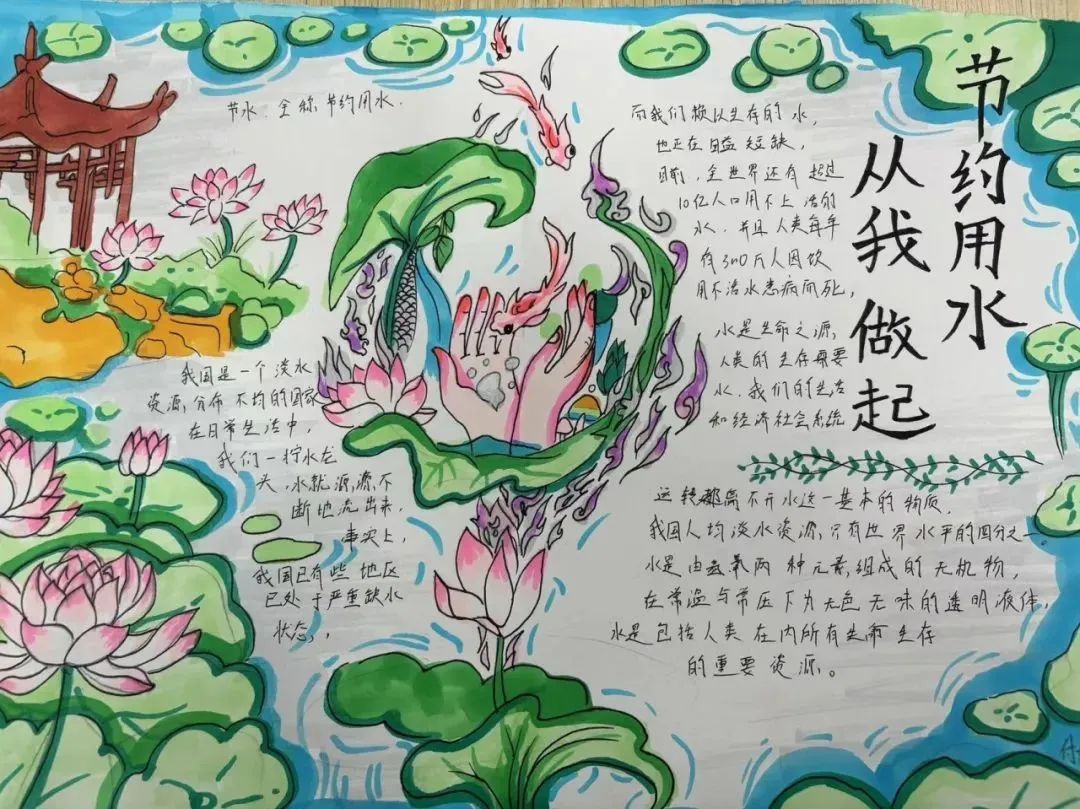 节约用水
从我做起
节水:全称节约用水.
我国是一个淡水
资源,分布不均的国家
在日常生活中,
我们一拧水龙
头,水就源源不
断地流出来,
事实上,
我国已有些地区
已处于严重缺水
状态,,
而我们赖以生存的水,
也正在日益短缺,
目前,全世界还有超过
10亿人口用不上洁的
水.并且人类每年
有300万人因饮
用不洁水患病而死,
水是生命之源,
人类的生存需要
水.我们的生活
和经济社会系统
运转都离不开水这一基本的物质.
我国人均淡水资源,只有世界水平的四分之一.
水是由氢氧两种元素,组成的无机物,
在常温与常压下为无色无味的透明液体,
水是包括人类在内所有生命生存
的重要资源。